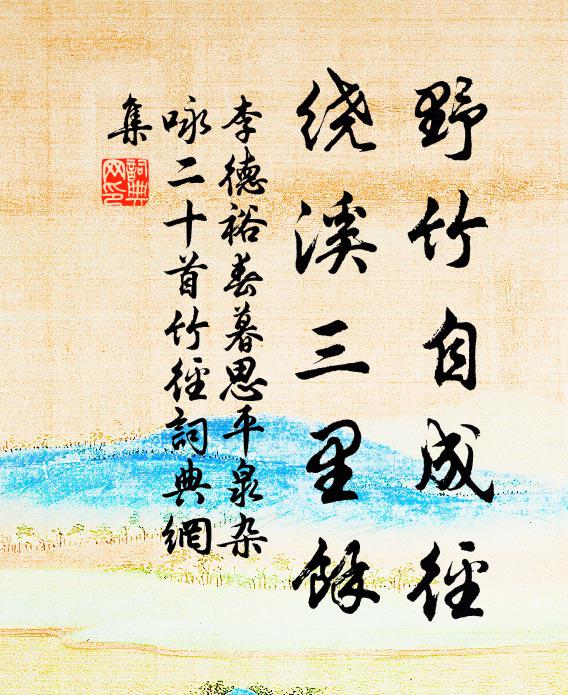 野竹自成径
绕溪三里餘
李德裕春暮思平泉杂
咏二十首竹径詞典網
集
詞典
网印